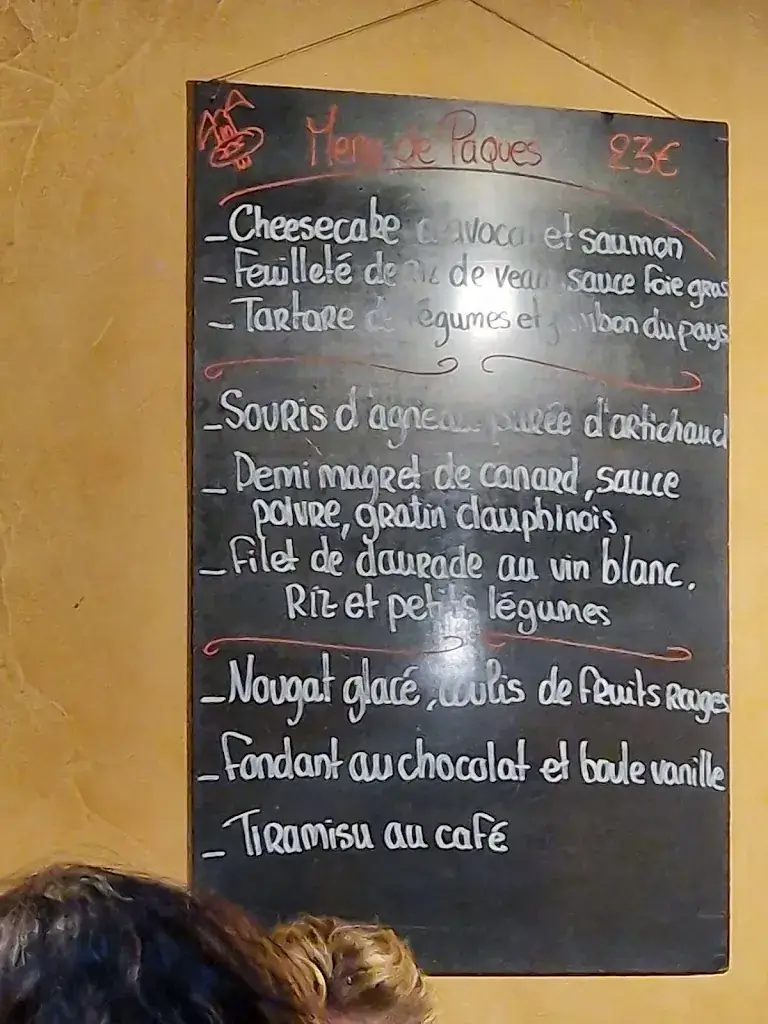 Menu de Paques 23€
- Cheesecake d'avocat et saumon
- Feuilleté de Riz de veau sauce foie gras
- Tartare de légumes et jambon du pays
- Souris d'agneau purée d'artichaud
- Demi magret de canard, sauce
poivre, gratin dauphinois
- Filet de daurade au vin blanc.
Riz et petits légumes
- Nougat glacé, coulis de fruits Rouges
- Fondant au chocolat et boule vanille
- Tiramisu au café